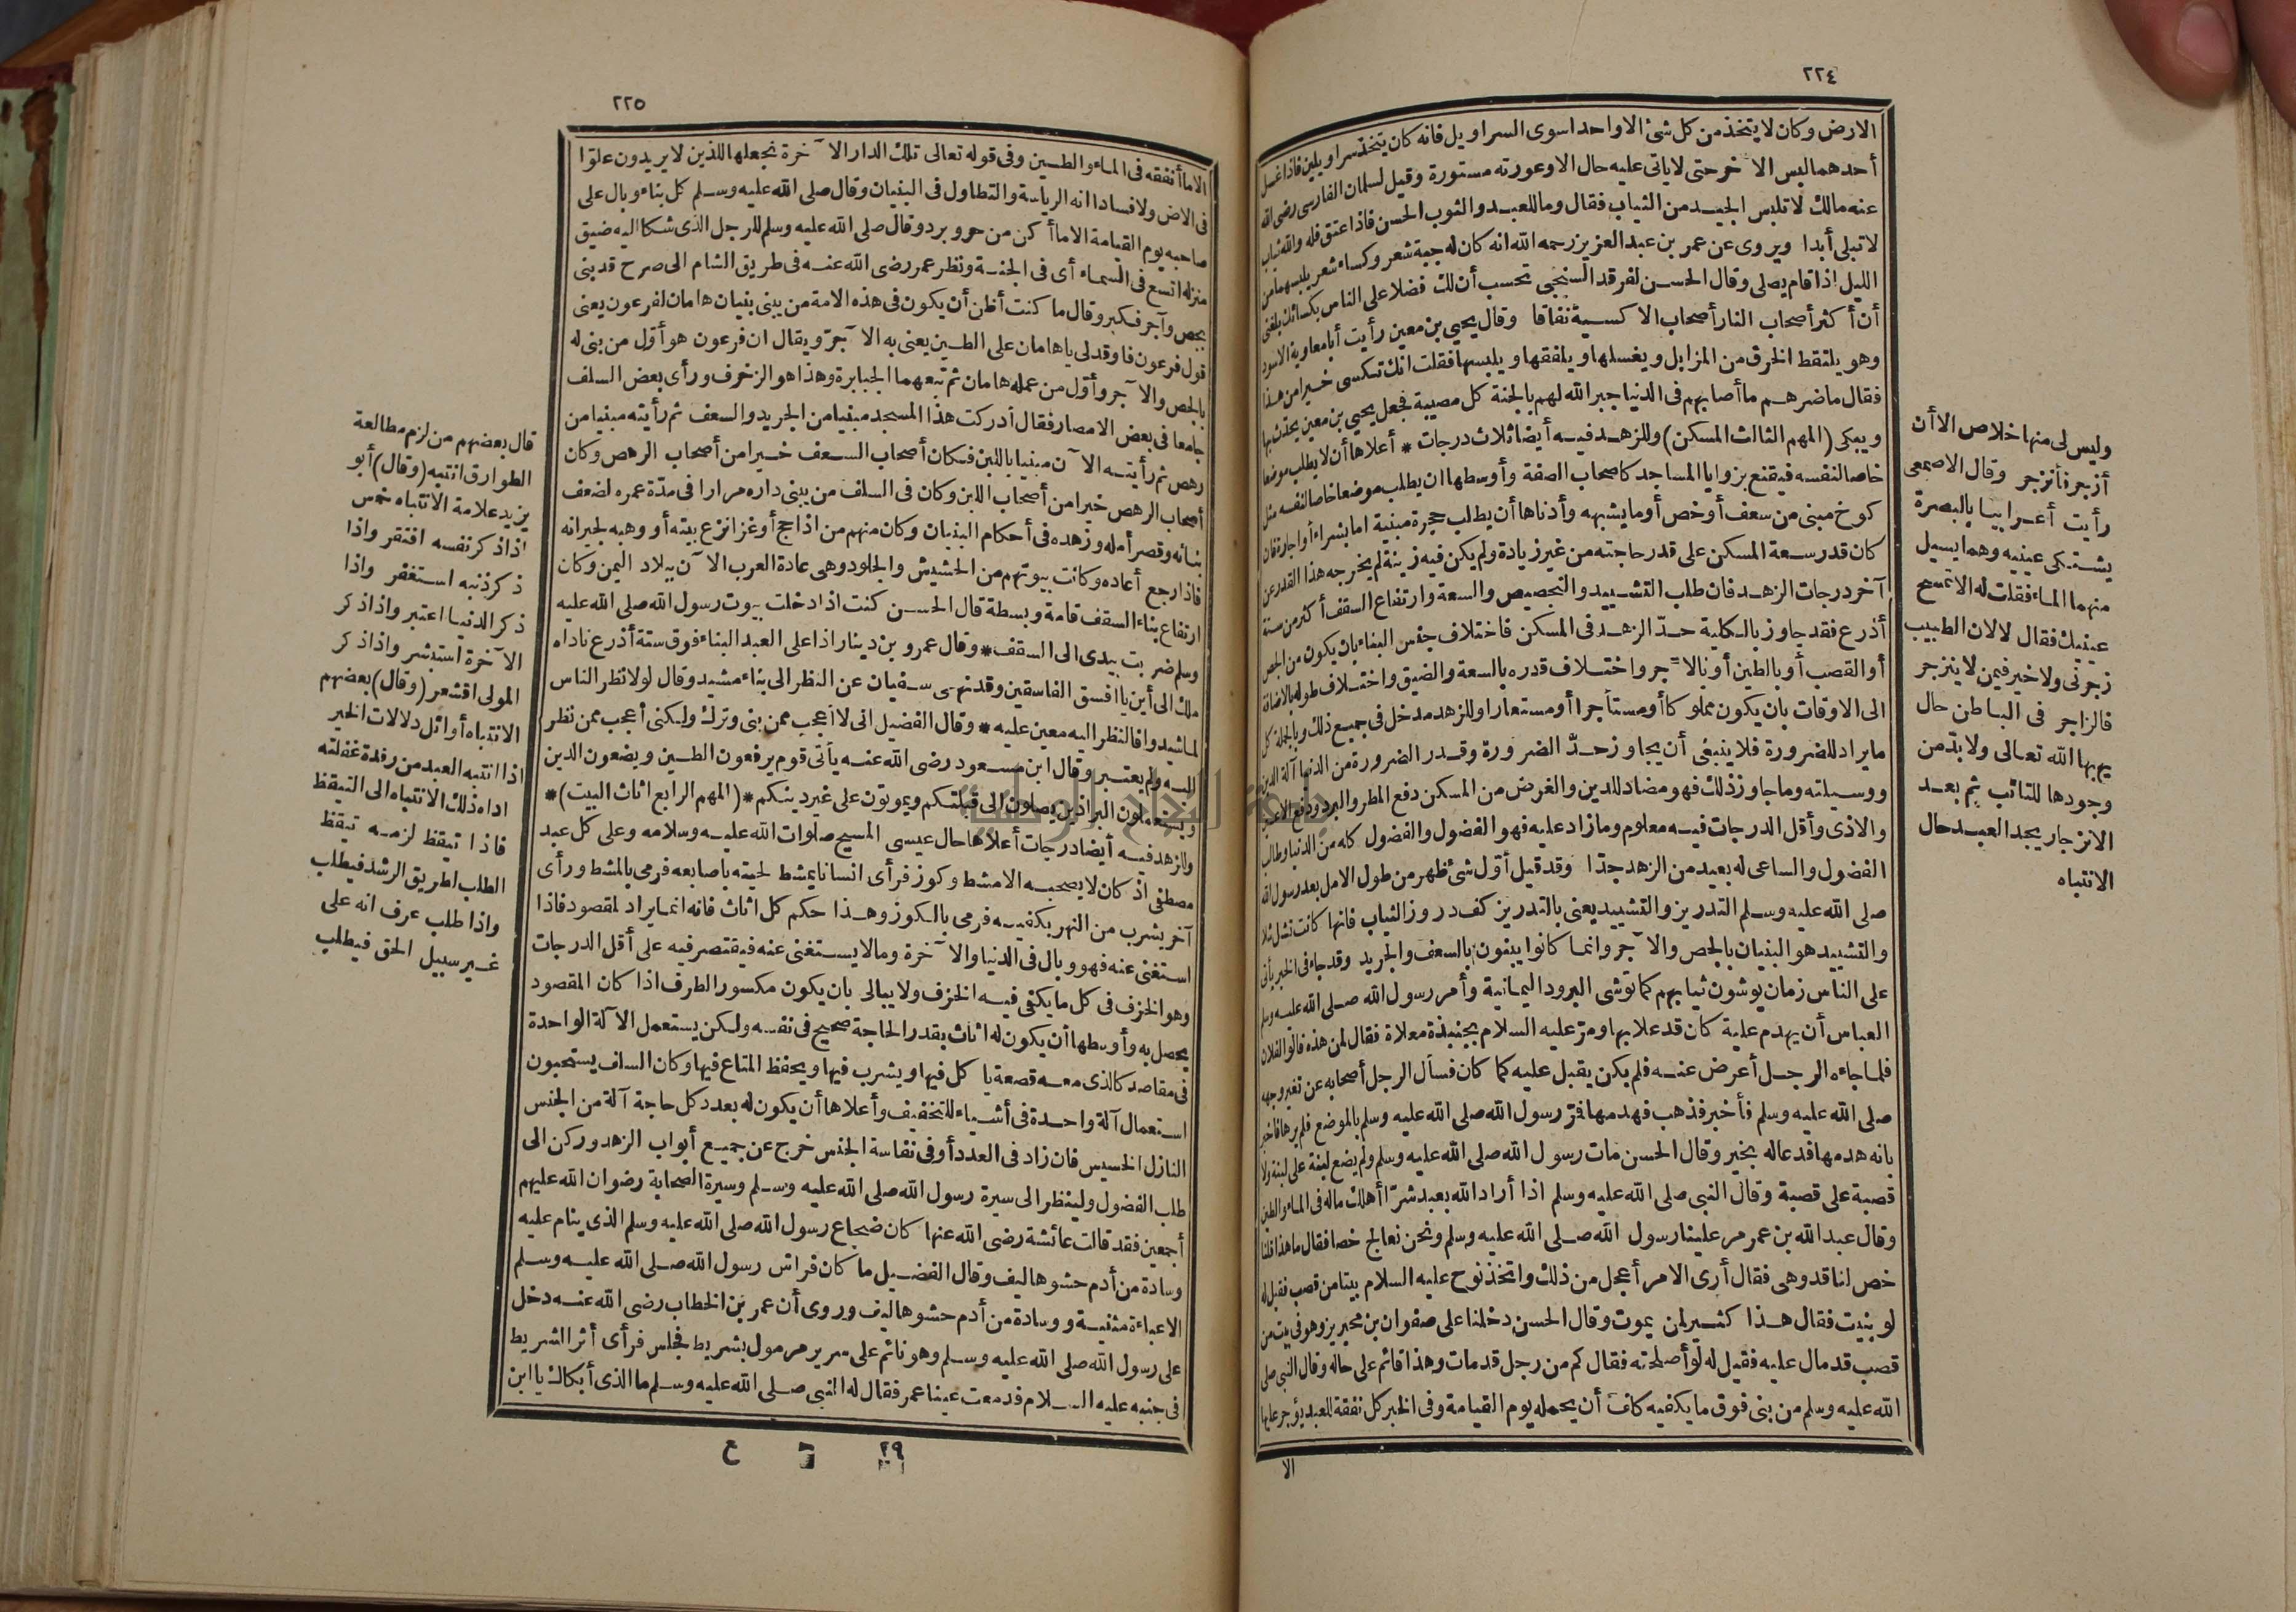 ٢٢٤
الارض وكان لا يتخذ من كل شئ الا واحدا سوى السراويل فانه كان يتخذ سراويلين فاذا غسل
أحدهما لبس الآخر حتى لا ياتى عليه حال الا وعورته مستورة وقيل لسلمان الفارسى رضى الله
عنه مالك لا تلبس الجيد من الثياب فقال وما للعبد والثوب الحسن فاذا عتق فله والله ثياب
لا تبلى أبدا ويروى عن عمر بن عبد العزيز رحمه الله انه كان له جبة شعر وكساء شعر يلبسهما من
الليل اذا قام يصلى وقال الحسن لفرقد السنجى تحسب أن لك فضلا على الناس بكسائك بلغنى
أن أكثر أصحاب النار أصحاب الاكسية نفاقا وقال يحيى بن معين رأيت أبا معاوية الاسود
وهو يلتقط الخرق من المزابل ويغسلها ويلفقها ويلبسها فقلت انك تكسى خيرا من هذا
فقال ماضرهم ما أصابهم فى الدنيا جبر الله لهم بالجنة كل مصيبة فجعل يحيى بن معين يحدث بها
ويبكى (المهم الثالث المسكن) وللزهد فيه أيضا ثلاث درجات * أعلاها أن لا يطلب موضعا
خاصا لنفسه فيقنع بزوايا المساجد كاصحاب الصفة وأوسطها ان يطلب موضعا خاصا لنفسه مثل
كوخ مبنى من سعف أو خص أو ما يشبهه وأدناها أن يطلب حجرة مبنية اما بشراء أو اجارة فان
كان قدر سعة المسكن على قدر حاجته من غير زيادة ولم يكن فيه زينة لم يخرجه هذا القدر عن
آخر درجات الزهد فان طلب التشييد والتجصيص والسعة وارتفاع السقف أكثر من ستة
أذرع فقد جاوز بالكلية حدّ الزهد فى المسكن فاختلاف جنس البناء بان يكون من الجص
أو القصب أو بالطين أو بالآجر واختلاف قدره بالسعة والضيق واختلاف طوله بالاضافة
الى الاوقات بان يكون مملوكا أو مستأجرا أو مستعارا وللزهد مدخل فى جميع ذلك وبالجملة كل
مايراد للضرورة فلا ينبغى أن يجاوز حدّ الضرورة وقدر الضرورة من الدنيا آلة الدين
ووسيلته وما جاوز ذلك فهو مضاد للدين والغرض من المسكن دفع المطر والبرد ودفع الاعين
والاذى وأقل الدرجات فيه معلوم ومازاد عليه فهو الفضول والفضول كله من الدنيا وطالب
الفضول والساعى له بعيد من الزهد جدّا وقد قيل أوّل شئ ظهر من طول الامل بعد رسول الله
صلى الله عليه وسلم التدريز والتشييد يعنى بالتدريز كف دروز الثياب فانها كانت تشل شلا
والتشييد هو البنيان بالجص والآجر وانما كانوا يبنون بالسعف والجريد وقد جاء فى الخبر يأتى
على الناس زمان يوشون ثيابهم كما توشى البرود اليمانية وأمر رسول الله صلى الله عليه وسلم
العباس أن يهدم علية كان قد علا بها ومرّ عليه السلام بجنبذة معلاة فقال لمن هذه قالوا لفلان
فلما جاءه الرجل أعرض عنه فلم يكن يقبل عليه كما كان فسأل الرجل أصحابه عن تغير وجهه
صلى الله عليه وسلم فأخبر فذهب فهدمها فمرّ رسول الله صلى الله عليه وسلم بالموضع فلم يرها فأخبر
بانه هدمها فدعا له بخير وقال الحسن مات رسول الله صلى الله عليه وسلم ولم يضع لبنة على لبنة ولا
قصبة على قصبة وقال النبى صلى الله عليه وسلم اذا أراد الله بعبد شرّا أهلك ماله فى الماء والطين
وقال عبد الله بن عمر مر علينا رسول الله صلى الله عليه وسلم ونحن نعالج خصا فقال ما هذا قلنا
خص لنا قد وهى فقال أرى الامر أعجل من ذلك واتخذ نوح عليه السلام بيتا من قصب فقيل له
لو بنيت فقال هذا كثير لمن يموت وقال الحسن دخلنا على صفوان بن محيريز وهو فى بيت من
قصب قد مال عليه فقيل له لو أصلحته فقال كم من رجل قد مات وهذا قائم على حاله وقال النبى صلى
الله عليه وسلم من بنى فوق ما يكفيه كلف أن يحمله يوم القيامة وفى الخبر كل نفقة للعبد يؤجر عليها
الا
وليس لى منها خلاص الا أن
أزجر فأنزجر وقال الاصمعى
رأيت أعرابيا بالبصرة
يشتكى عينيه وهما يسيل
منهما الماء فقلت له الا تمسح
عينيك فقال لا لان الطبيب
زجرنى ولا خير فيمن لا ينزجر
فالزاجر فى الباطن حال
يهبها الله تعالى ولا بدّ من
وجودها للتائب ثم بعد
الانزجار يجد العبد حال
الانتباه
٢٢٥
الا ما أنفقه فى الماء والطين وفى قوله تعالى تلك الدار الآخرة نجعلها للذين لا يريدون علوّا
فى الارض ولا فسادا انه الرياسة والتطاول فى البنيان وقال صلى الله عليه وسلم كل بناء وبال على
صاحبه يوم القيامة الا ما أكن من حر وبرد وقال صلى الله عليه وسلم للرجل الذى شكا اليه ضيق
منزله اتسع فى السماء أى فى الجنة ونظر عمر رضى الله عنه فى طريق الشام الى صرح قد بنى
بجص وآجر فكبر وقال ما كنت أظن أن يكون فى هذه الامة من يبنى بنيان هامان لفرعون يعنى
قول فرعون فاوقد لى ياهامان على الطين يعنى به الآجرّ ويقال ان فرعون هو أوّل من بنى له
بالجص والآجر وأوّل من عمله هامان ثم تبعهما الجبابرة وهذا هو الزخرف ورأى بعض السلف
جامعا فى بعض الامصار فقال أدركت هذا المسجد مبنيا من الجريد والسعف ثم رأيته مبنيا من
رهص ثم رأيته الآن مبنيا باللبن فكان أصحاب السعف خيرا من أصحاب الرهص وكان
أصحاب الرهص خيرا من أصحاب اللبن وكان فى السلف من يبنى داره مرارا فى مدّة عمره لضعف
بنائه وقصر أمله وزهده فى أحكام البنيان وكان منهم من اذا حج أو غزا نزع بيته أو وهبه لجيرانه
فاذا رجع أعاده وكانت بيوتهم من الحشيش والجلود وهى عادة العرب الآن ببلاد اليمن وكان
ارتفاع بناء السقف قامة وبسطة قال الحسن كنت اذا دخلت بيوت رسول الله صلى الله عليه
وسلم ضربت بيدى الى السقف * وقال عمرو بن دينار اذا على العبد البناء فوق ستة أذرع ناداه
ملك الى أين يا أفسق الفاسقين وقد نهى سفيان عن النظر الى بناء مشيد وقال لولا نظر الناس
لما شيدوا فالنظر اليه معين عليه * وقال الفضيل انى لا أعجب ممن بنى وترك ولكنى أعجب ممن نظر
اليه ولم يعتبر وقال ابن مسعود رضى الله عنه يأتى قوم يرفعون الطين ويضعون الدين
ويستعملون البراذين يصلون الى قبلتكم ويموتون على غير دينكم * (المهم الرابع اثاث البيت) *
وللزهد فيه أيضا درجات أعلاها حال عيسى المسيح صلوات الله عليه وسلامه وعلى كل عبد
مصطفى اذ كان لا يصحبه الا مشط وكوز فرأى انسانا يمشط لحيته باصابعه فرمى بالمشط ورأى
آخر يشرب من النهر بكفيه فرمى بالكوز وهذا حكم كل اثاث فانه انما يراد لمقصود فاذا
استغنى عنه فهو وبال فى الدنيا والآخرة وما لا يستغنى عنه فيقتصر فيه على أقل الدرجات
وهو الخزف فى كل ما يكفى فيه الخزف ولا يبالى بان يكون مكسور الطرف اذا كان المقصود
يحصل به وأوسطها أن يكون له اثاث بقدر الحاجة صحيح فى نفسه ولكن يستعمل الآلة الواحدة
فى مقاصد كالذى معه قصعة يأكل فيها ويشرب فيها ويحفظ المتاع فيها وكان السلف يستحبون
استعمال آلة واحدة فى أشياء للتخفيف وأعلاها أن يكون له بعدد كل حاجة آلة من الجنس
النازل الخسيس فان زاد فى العدد أو فى نفاسة الجنس خرج عن جميع أبواب الزهد وركن الى
طلب الفضول ولينظر الى سيرة رسول الله صلى الله عليه وسلم وسيرة الصحابة رضوان الله عليهم
أجمعين فقد قالت عائشة رضى الله عنها كان ضجاع رسول الله صلى الله عليه وسلم الذى ينام عليه
وسادة من أدم حشوها ليف وقال الفضيل ما كان فراش رسول الله صلى الله عليه وسلم
الا عباءة مثنية ووسادة من أدم حشوها ليف وروى أن عمر بن الخطاب رضى الله عنه دخل
على رسول الله صلى الله عليه وسلم وهو نائم على سرير مرمول بشريط فجلس فرأى أثر الشريط
فى جنبه عليه السلام فدمعت عينا عمر فقال له النبى صلى الله عليه وسلم ما الذى أبكاك يا ابن
٢٩ ع
قال بعضهم من لزم مطالعة
الطوارق انتبه (وقال) أبو
يزيد علامة الانتباه خمس
اذا ذكر نفسه افتقر واذا
ذكر ذنبه استغفر واذا
ذكر الدنيا اعتبر واذا ذكر
الآخرة استبشر واذا ذكر
المولى اقشعر (وقال) بعضهم
الانتباه أوائل دلالات الخير
اذا انتبه العبد من رقدة غفلته
اداه ذلك الانتباه الى التيقظ
فاذا تيقظ لزمه تيقظ
الطلب لطريق الرشد فيطلب
واذا طلب عرف انه على
غير سبيل الحق فيطلب
جامعة النجاح الوطنية